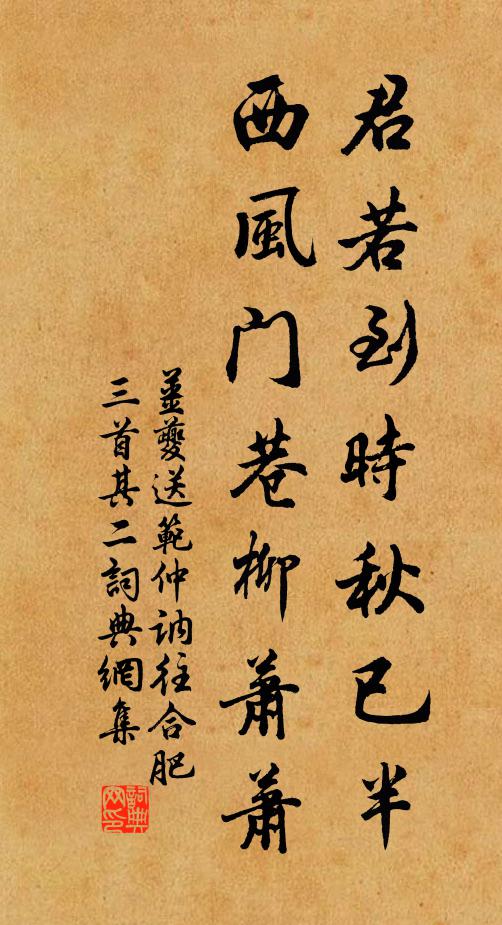 君若到時秋已半
西風門巷柳蕭蕭
姜夔送範仲訥往合肥
三首其二詞典網集
詞典網印